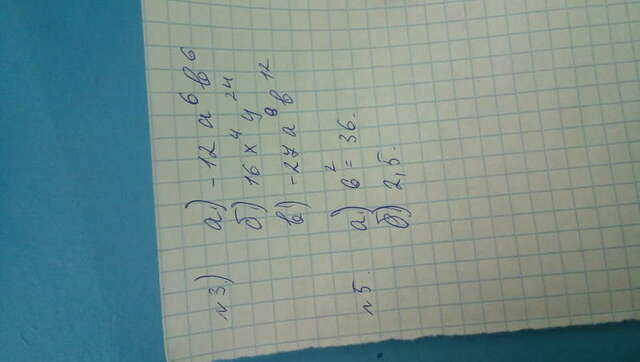 №3.) а.) -12 a⁶ b⁶
б.) 16 x⁴ y²⁴
в.) -27 a⁹ b¹²
№5. а.) 6² = 36.
б.) 2,5.